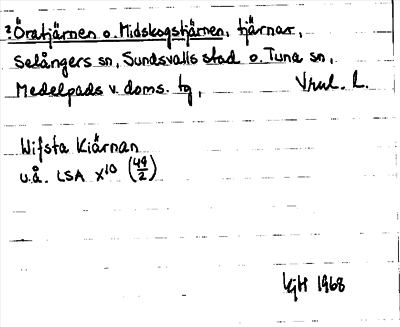 ?Öratjärnen o. Midskogstjärnen, tjärnar,
Selångers sn, Sundsvalls stad o. Tuna sn,
Medelpads v. doms. tg,
Wifsta Kiärnan
u.å. LSA X10 (49/2)
KjH 1968